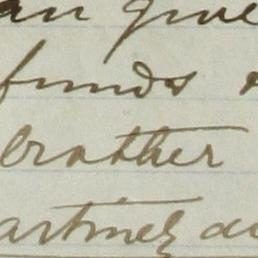 an give
funds
brother
artinez